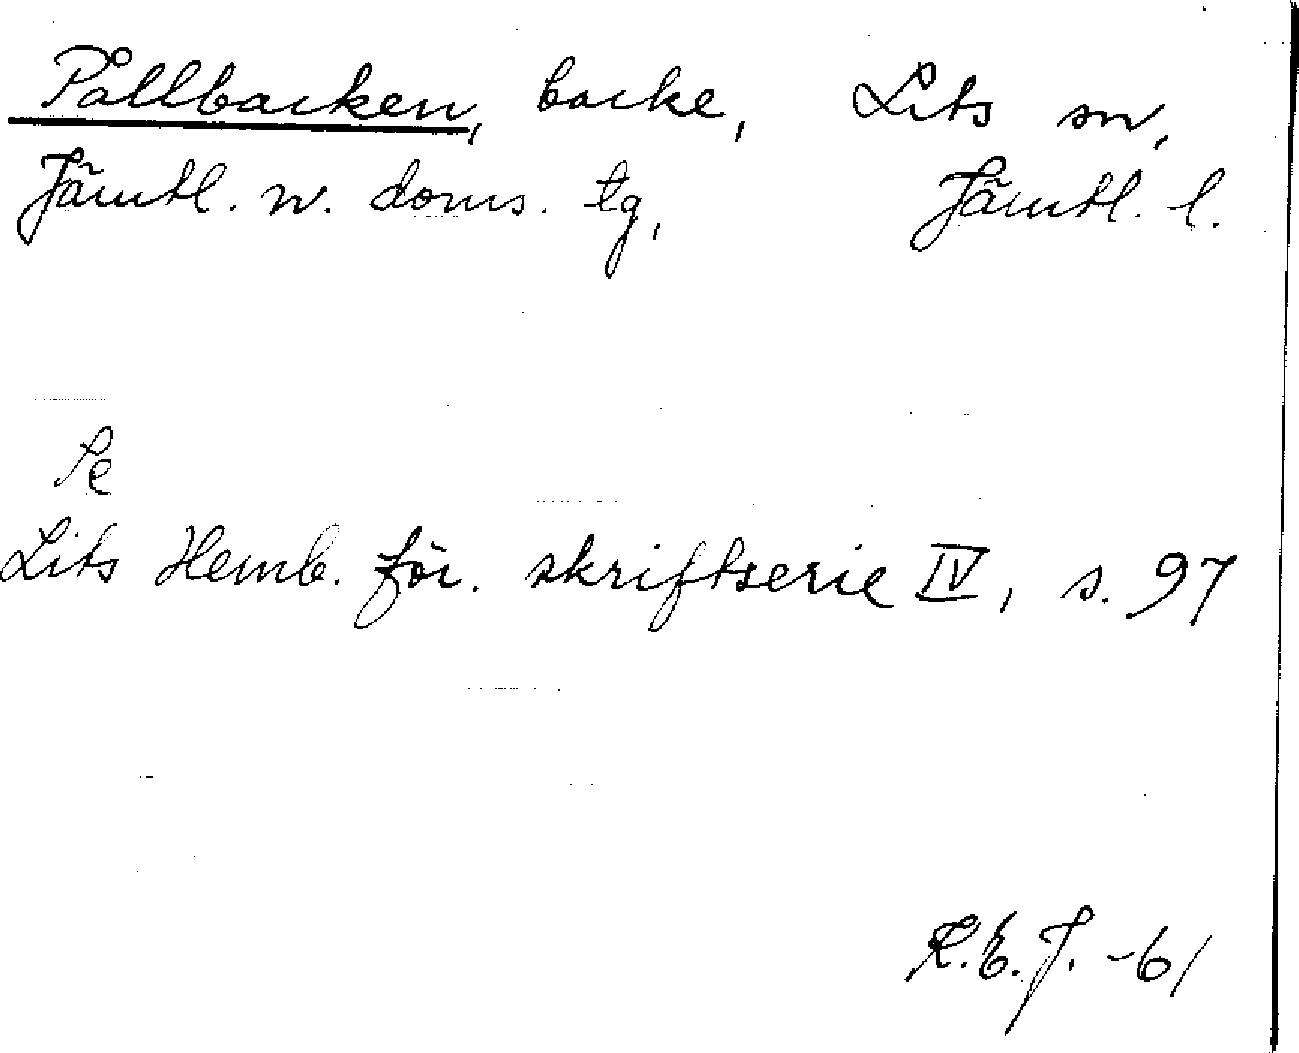 Pållbacken, backe, Lits sn,
Jämtl. n. doms. tg, Jämtl. l.
Se
Lits Hemb. för. skriftserie IV, s. 97
R.E.J. -61